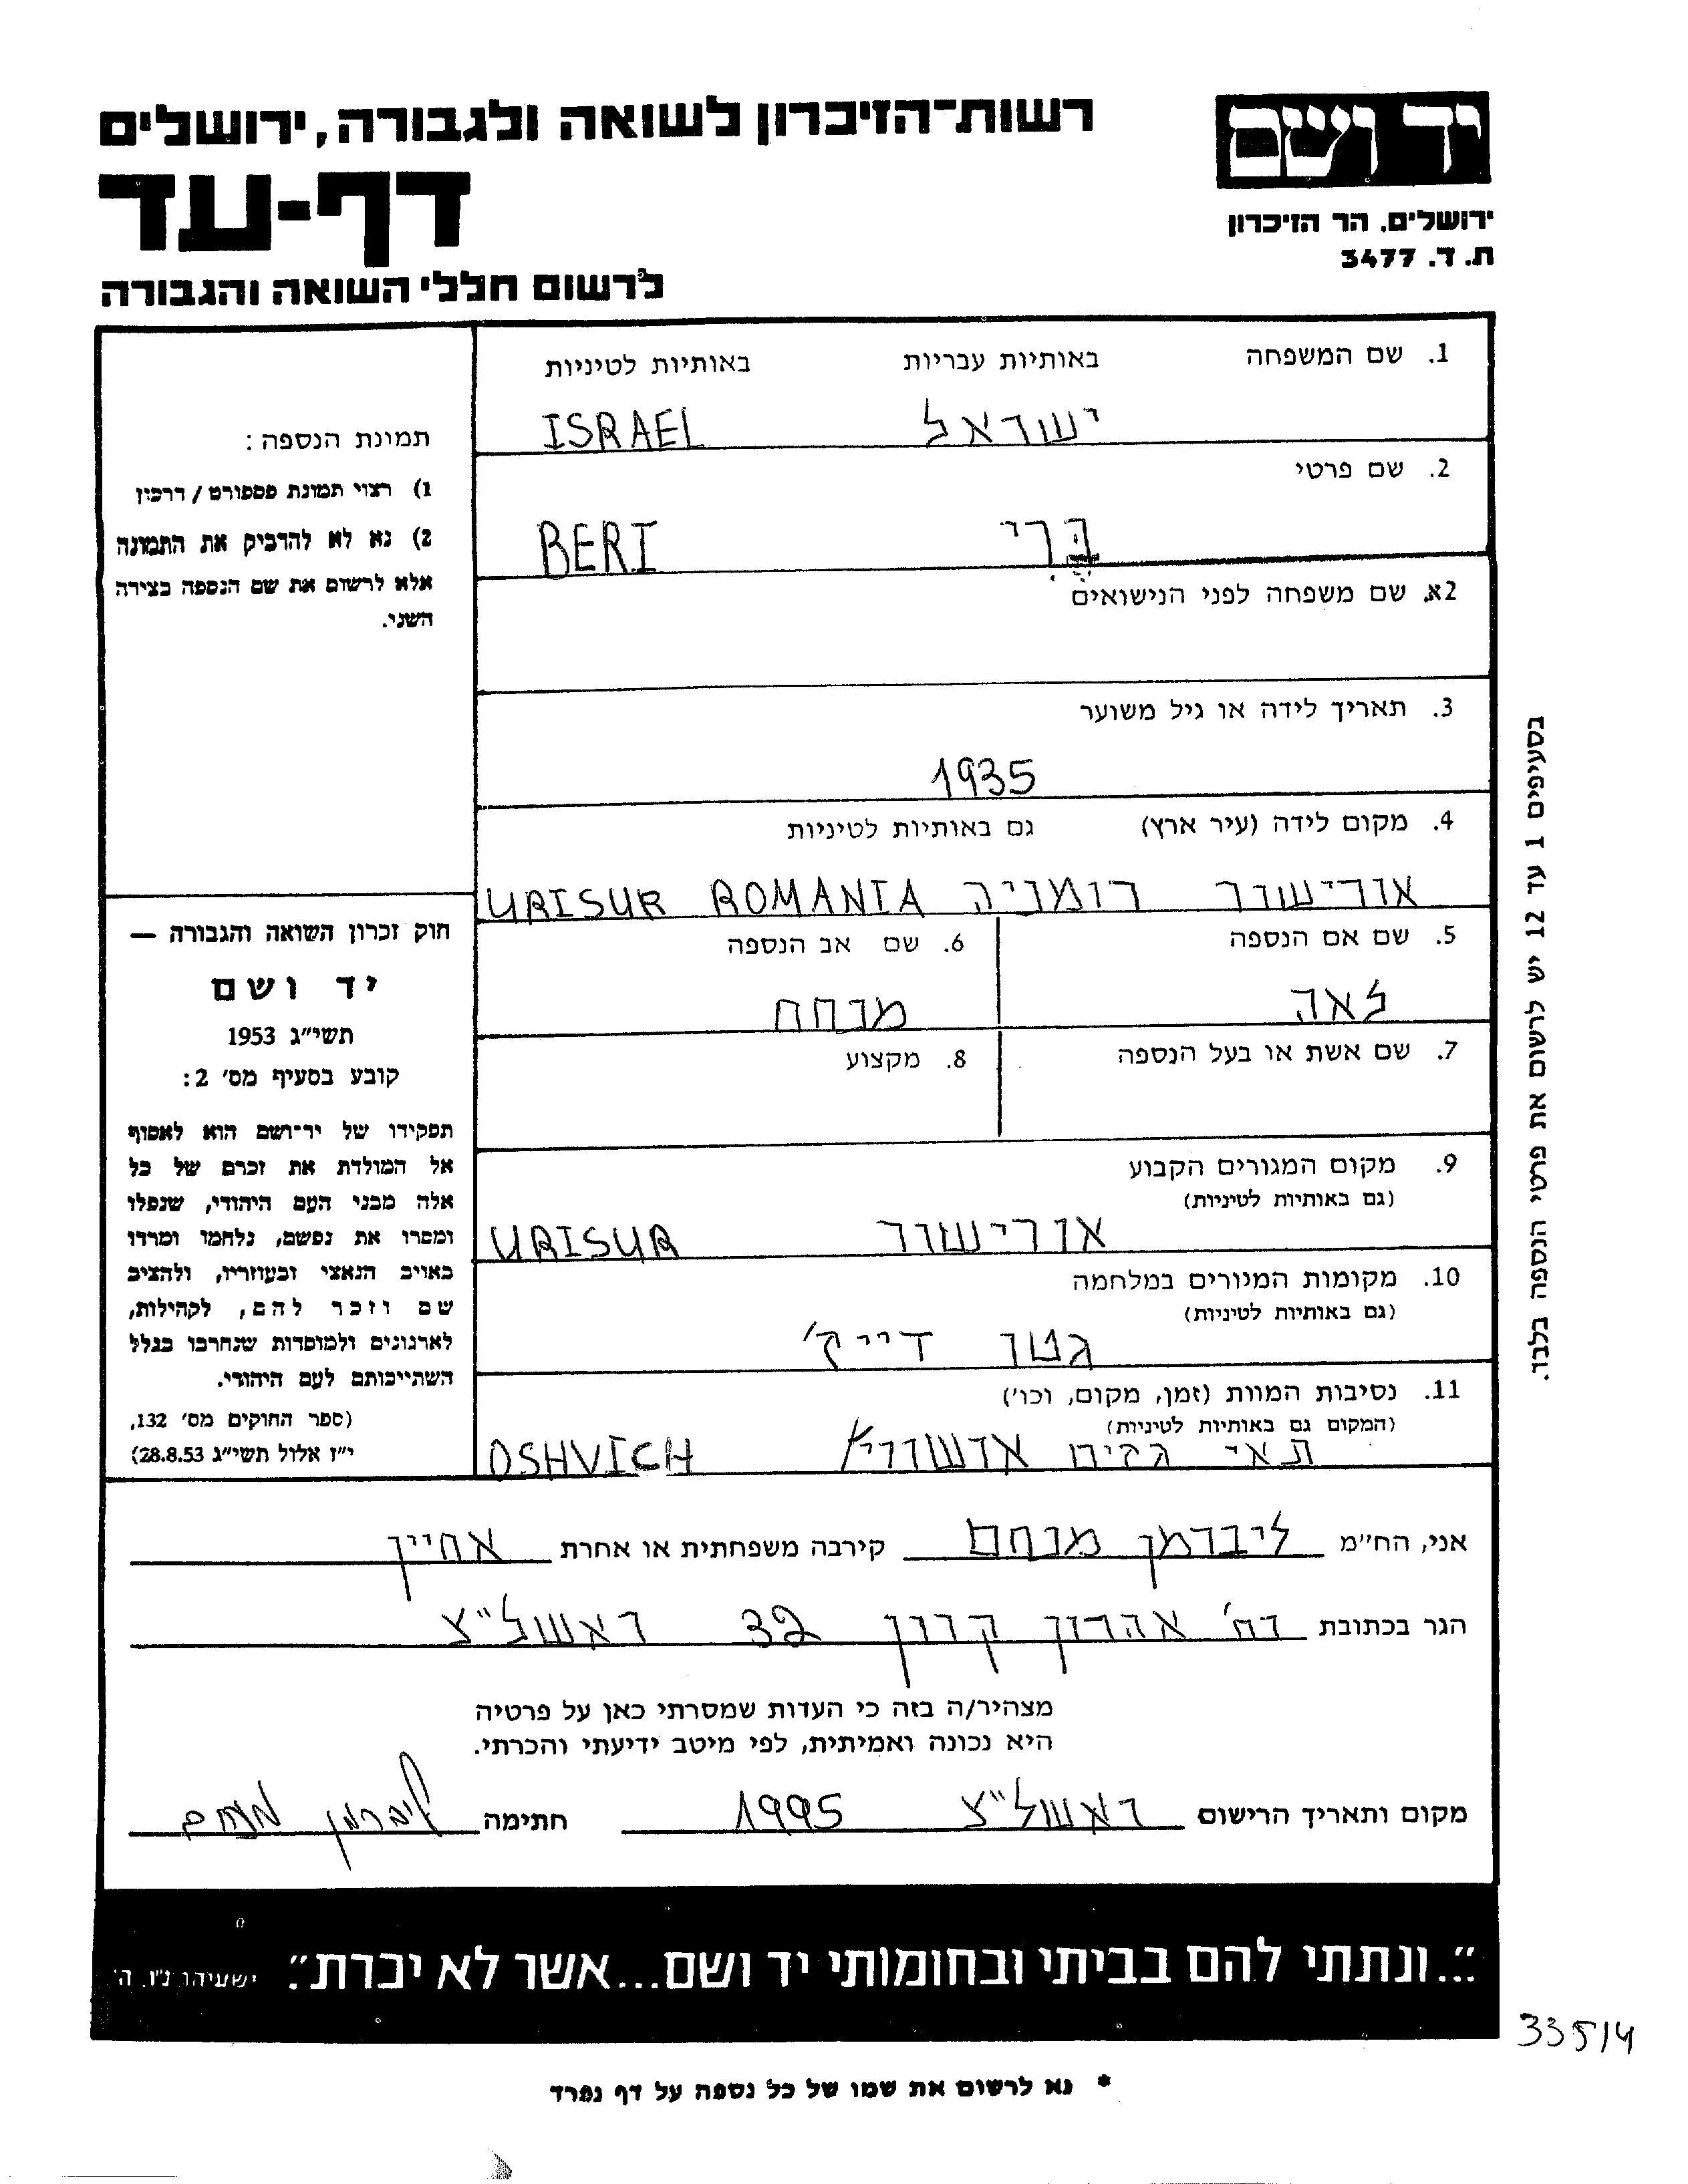 יד ושם
ירושלים. הר הזיכרון
ת. ד. 3477
רשות-הזיכרון לשואה ולגבורה, ירושלים
דף-עד
לרשום חללי השואה והגבורה
1. שם המשפחה באותיות עבריות באותיות לטיניות
ישראל ISRAEL
2. שם פרטי
ברי BERI
2א. שם משפחה לפני הנישואים
3. תאריך לידה או גיל משוער
1935
4. מקום לידה (עיר ארץ) גם באותיות לטיניות
אורישור רומניה URISUR ROMANIA
5. שם אם הנספה
לאה
6. שם אב הנספה
מנחם
7. שם אשת או בעל הנספה
8. מקצוע
9. מקום המגורים הקבוע
(גם באותיות לטיניות)
אורישור URISUR
10. מקומות המגורים במלחמה
(גם באותיות לטיניות)
גטו דייז'
11. נסיבות המוות (זמן, מקום, וכו')
(המקום גם באותיות לטיניות)
תאי גזים אושוויץ OSHVICH
תמונת הנספה:
1) רצוי תמונת פספורט / דרכון
2) נא לא להדביק את התמונה
אלא לרשום את שם הנספה בצידה
השני.
חוק זכרון השואה והגבורה —
יד ושם
תשי"ג 1953
קובע בסעיף מס' 2:
תפקידו של יד-ושם הוא לאסוף
אל המולדת את זכרם של כל
אלה מבני העם היהודי, שנפלו
ומסרו את נפשם, נלחמו ומרדו
באויב הנאצי ובעוזריו, ולהציב
שם וזכר להם, לקהילות,
לארגונים ולמוסדות שנחרבו בגלל
השתייכותם לעם היהודי.
(ספר החוקים מס' 132,
י"ז אלול תשי"ג 28.8.53)
בסעיפים 1 עד 12 יש לרשום את פרטי הנספה בלבד.
אני, הח"מ ליברמן מנחם קירבה משפחתית או אחרת אחיין
הגר בכתובת רח' אהרון קרון 32 ראשל"צ
מצהיר/ה בזה כי העדות שמסרתי כאן על פרטיה
היא נכונה ואמיתית, לפי מיטב ידיעתי והכרתי.
מקום ותאריך הרישום ראשל"צ 1995 חתימה ליברמן מנחם
"...ונתתי להם בביתי ובחומותי יד ושם...אשר לא יכרת". ישעיהו נ"ו. ה'
33514
* נא לרשום את שמו של כל נספה על דף נפרד